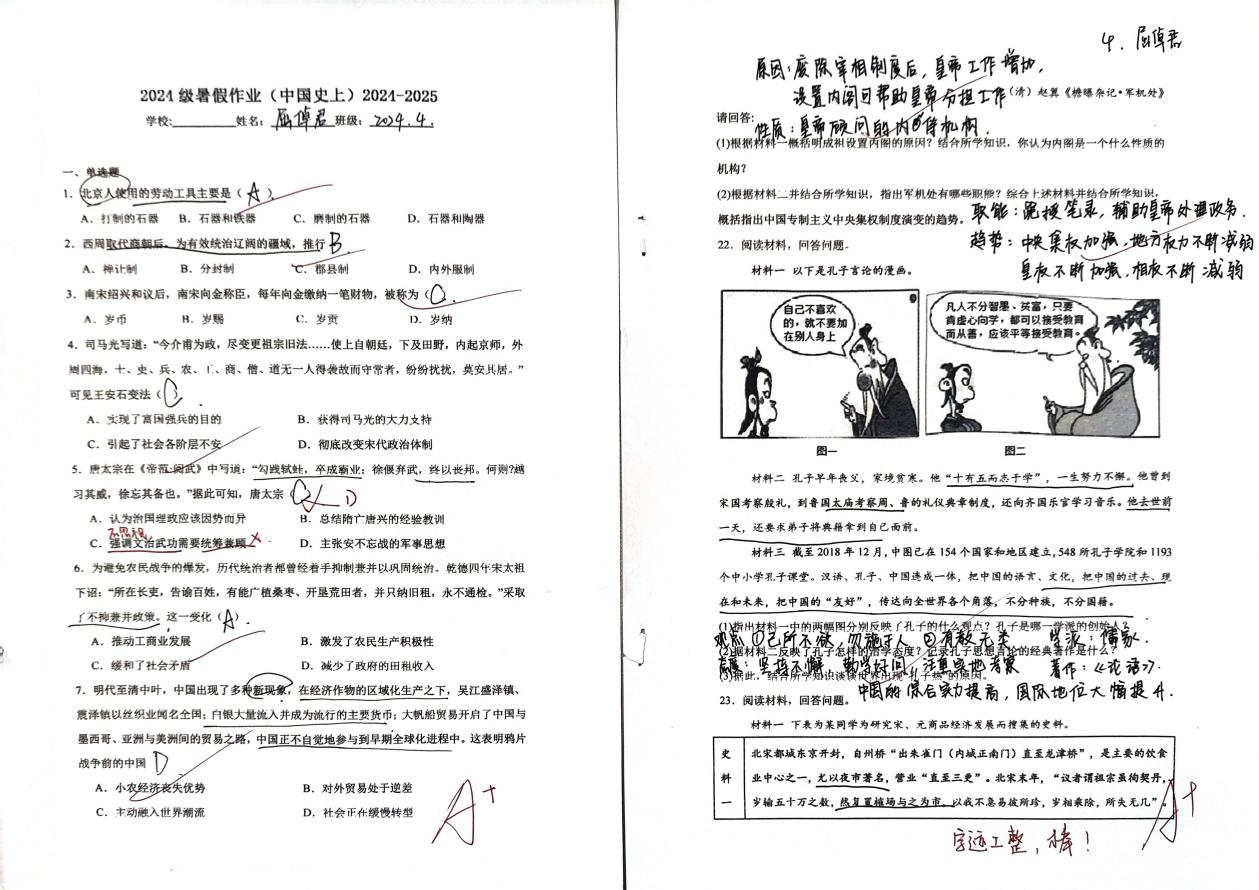 2024 级暑假作业（中国史上）2024-2025
学校:________姓名：屈倬君 班级：2024.4.
一、单选题
1．北京人使用的劳动工具主要是（ A ）．
A．打制的石器 B．石器和铁器 C．磨制的石器 D．石器和陶器
2．西周取代商朝后，为有效统治辽阔的疆域，推行 B．
A．禅让制 B．分封制 C．郡县制 D．内外服制
3．南宋绍兴和议后，南宋向金称臣，每年向金缴纳一笔财物，被称为（ C ．
A．岁币 B．岁赐 C．岁贡 D．岁纳
4．司马光写道：“今介甫为政，尽变更祖宗旧法……使上自朝廷，下及田野，内起京师，外
周四海，士、吏、兵、农、工、商、僧、道无一人得袭故而守常者，纷纷扰扰，莫安其居。”
可见王安石变法（ C ．
A．实现了富国强兵的目的 B．获得司马光的大力支持
C．引起了社会各阶层不安 D．彻底改变宋代政治体制
5．唐太宗在《帝范·阅武》中写道：“勾践轼蛙，卒成霸业；徐偃弃武，终以丧邦。何则?越
习其威，徐忘其备也。”据此可知，唐太宗（ C D
A．认为治国理政应该因势而异 B．总结隋亡唐兴的经验教训
C．强调文治武功需要统筹兼顾 × D．主张安不忘战的军事思想
6．为避免农民战争的爆发，历代统治者都曾经着手抑制兼并以巩固统治。乾德四年宋太祖
下诏：“所在长吏，告谕百姓，有能广植桑枣、开垦荒田者，并只纳旧租，永不通检。”采取
了不抑兼并政策。这一变化（ A ）．
A．推动工商业发展 B．激发了农民生产积极性
C．缓和了社会矛盾 D．减少了政府的田租收入
7．明代至清中叶，中国出现了多种新现象，在经济作物的区域化生产之下，吴江盛泽镇、
震泽镇以丝织业闻名全国；白银大量流入并成为流行的主要货币；大帆船贸易开启了中国与
墨西哥、亚洲与美洲间的贸易之路，中国正不自觉地参与到早期全球化进程中。这表明鸦片
战争前的中国 D ．
A．小农经济丧失优势 B．对外贸易处于逆差
C．主动融入世界潮流 D．社会正在缓慢转型
A+
4．屈倬君
原因：废除宰相制度后，皇帝工作增加，
设置内阁可帮助皇帝分担工作
（清）赵翼《檐曝杂记•军机处》
请回答：
性质：皇帝顾问的内侍机构．
(1)根据材料一概括明成祖设置内阁的原因？结合所学知识，你认为内阁是一个什么性质的
机构？
(2)根据材料二并结合所学知识，指出军机处有哪些职能？综合上述材料并结合所学知识，
概括指出中国专制主义中央集权制度演变的趋势。
职能：跪授笔录，辅助皇帝处理政务．
趋势：中央集权加强，地方权力不断减弱
皇权不断加强，相权不断减弱
22．阅读材料，回答问题。
材料一 以下是孔子言论的漫画。
自己不喜欢
的，就不要加
在别人身上
凡人不分智愚、贫富，只要
肯虚心向学，都可以接受教育
而从善，应该平等接受教育。
图一 图二
材料二 孔子早年丧父，家境贫寒。他“十有五而志于学”，一生努力不懈。他曾到
宋国考察殷礼，到鲁国太庙考察周、鲁的礼仪典章制度，还向齐国乐官学习音乐。他去世前
一天，还要求弟子将典籍拿到自己面前。
材料三 截至 2018 年 12 月，中图已在 154 个国家和地区建立，548 所孔子学院和 1193
个中小学孔子课堂。汉语、孔子、中国连成一体，把中国的语言、文化，把中国的过去、现
在和未来，把中国的“友好”，传达向全世界各个角落，不分种族，不分国籍。
(1)指出材料一中的两幅图分别反映了孔子的什么观点？孔子是哪一学派的创始人？
观点 ①己所不欲，勿施于人 ②有教无类 学派：儒家．
(2)据材料二反映了孔子怎样的治学态度？记录孔子思想言论的经典著作是什么？
态度：坚持不懈，勤学好问，注重实地考察 著作：《论语》．
(3)据此，结合所学知识谈谈世界出现“孔子热”的原因。
中国的综合实力提高，国际地位大幅提升．
23．阅读材料，回答问题。
材料一 下表为某同学为研究宋、元商品经济发展而搜集的史料。
史料一
北宋都城东京开封，自州桥“出朱雀门（内城正南门）直至龙津桥”，是主要的饮食
业中心之一，尤以夜市著名，营业“直至三更”。北宋末年，“议者谓祖宗虽徇契丹，
岁输五十万之数，然复置榷场与之为市，以我不急易彼所珍，岁相乘除，所失无几”。
A+
字迹工整，棒！